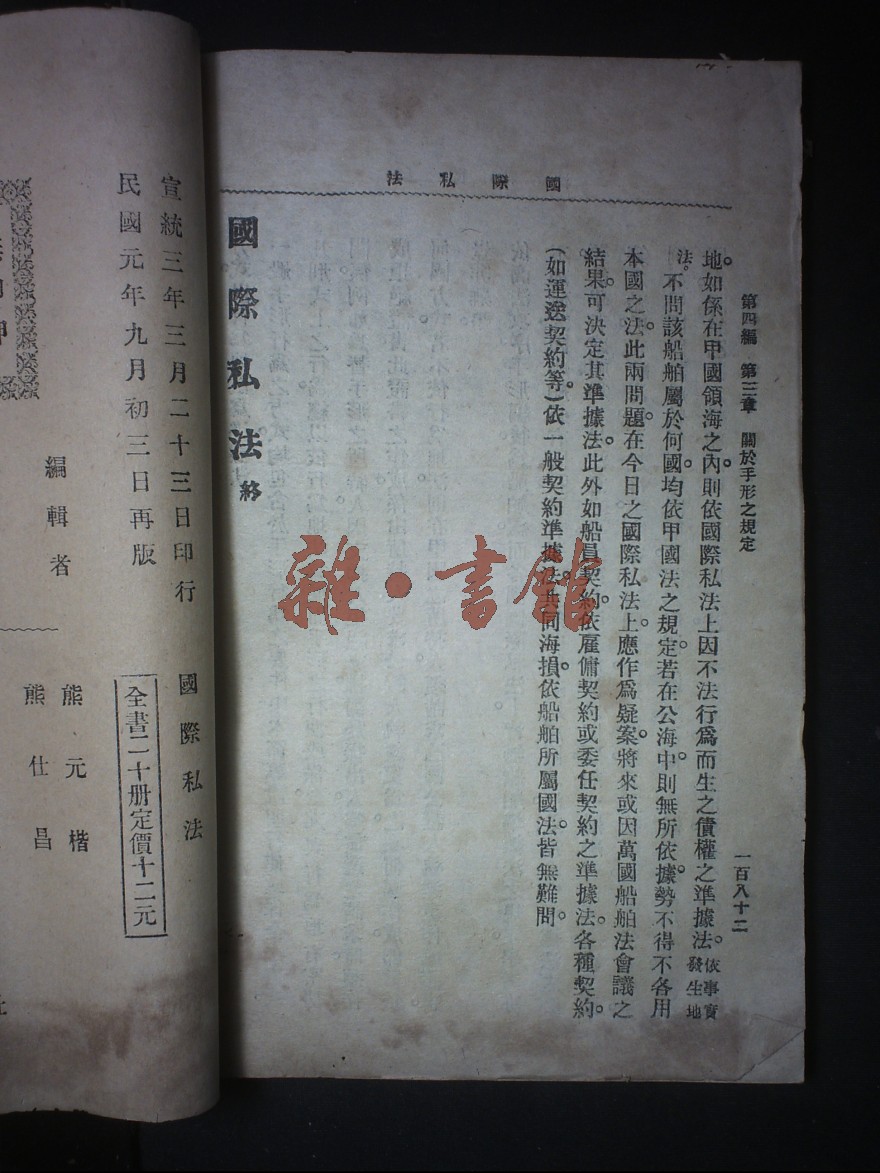 國際私法
第四編 第三章 關於手形之規定
一百八十二
地。如係在甲國領海之內。則依國際私法上因不法行爲而生之債權之準據法。依事實發生地
法。不問該船舶屬於何國。均依甲國法之規定。若在公海中。則無所依據。勢不得不各用
本國之法。此兩問題。在今日之國際私法上。應作爲疑案。將來或因萬國船舶法會議之
結果。可決定其準據法。此外如船員契約。依雇傭契約或委任契約之準據法。各種契約。
(如運送契約等。)依一般契約準據法。共同海損。依船舶所屬國法。皆無難問。
國際私法終
雜·書館
國際私法
宣統三年三月二十三日印行
全書二十册定價十二元
民國元年九月初三日再版
編輯者
熊元楷
熊仕昌